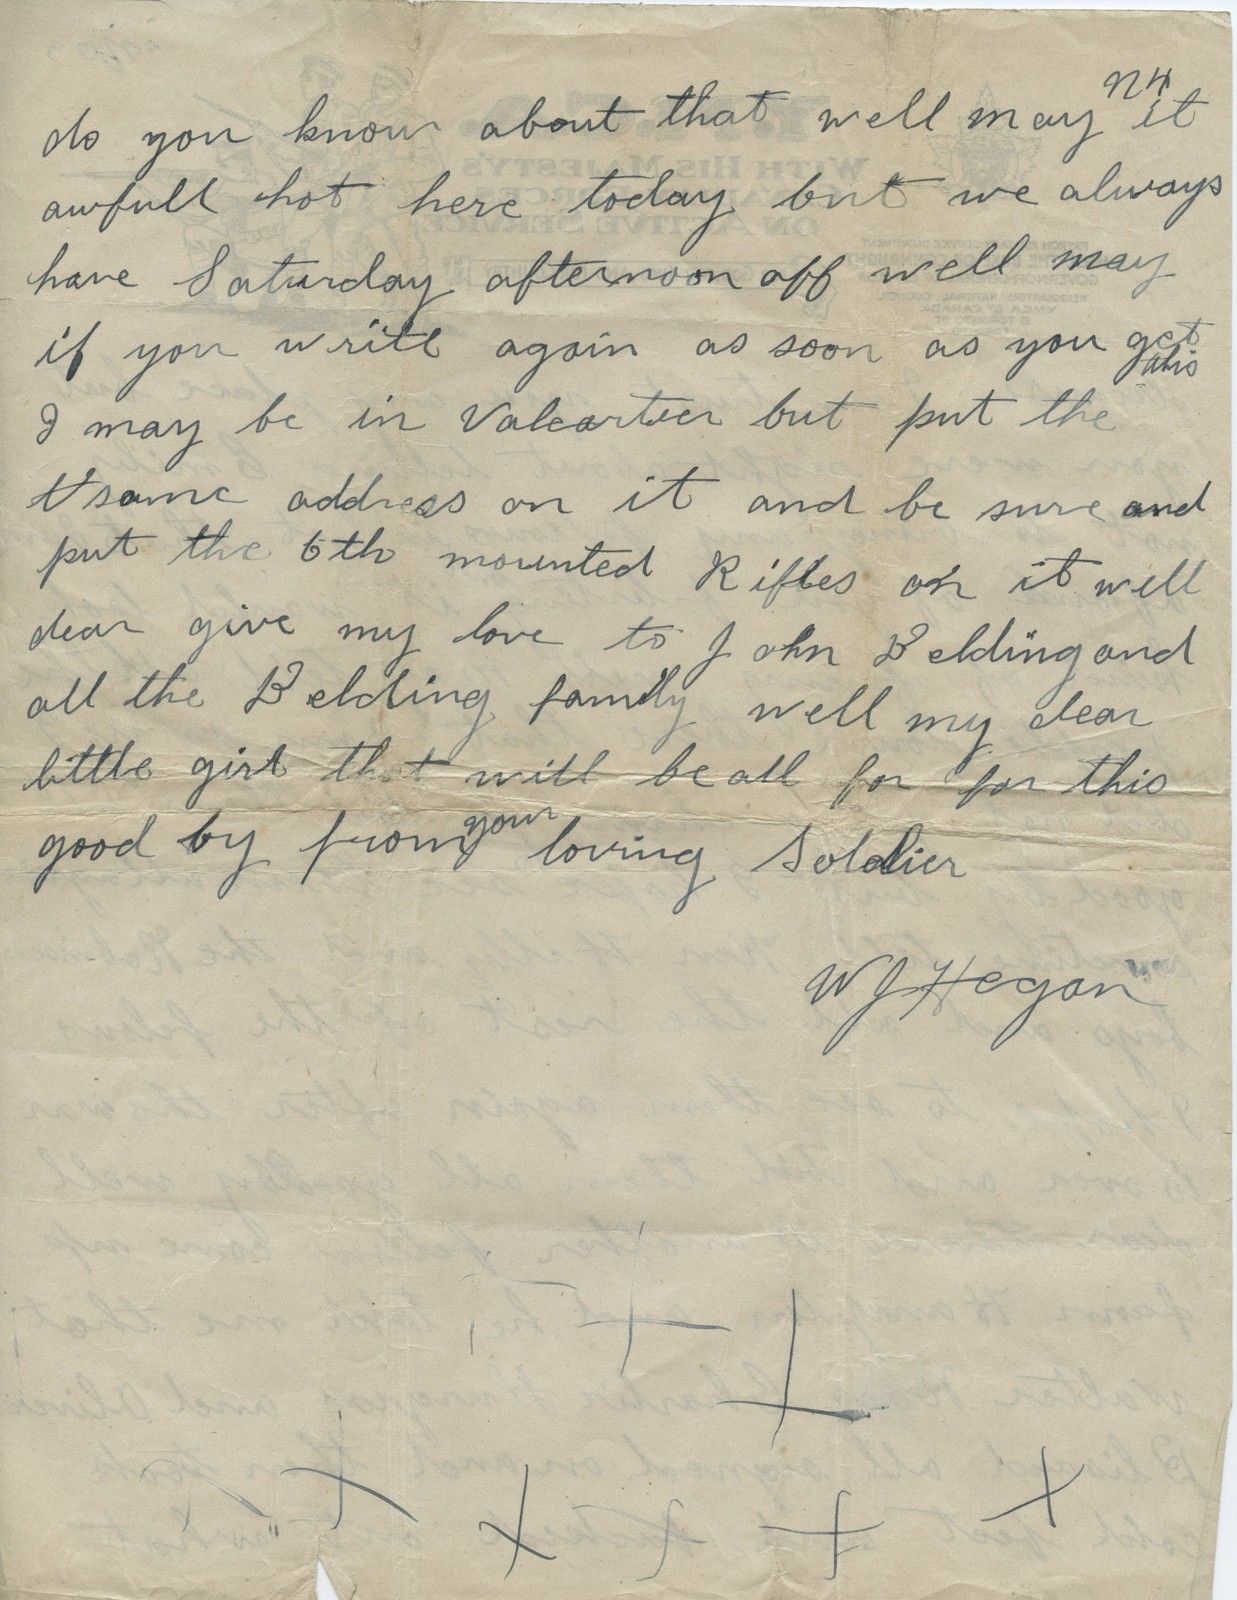 N4
do you know about that well may it
awfull hot here today but we always
have Saturday afternoon off well may
if you write again as soon as you get
this
I may be in Valcartier but put the
same address on it and be sure and
put the 6th mounted Rifles on it well
dear give my love to John Belding and
all the Belding family well my dear
little girl that will be all for for this
good by from your loving Soldier
WJ Hegan